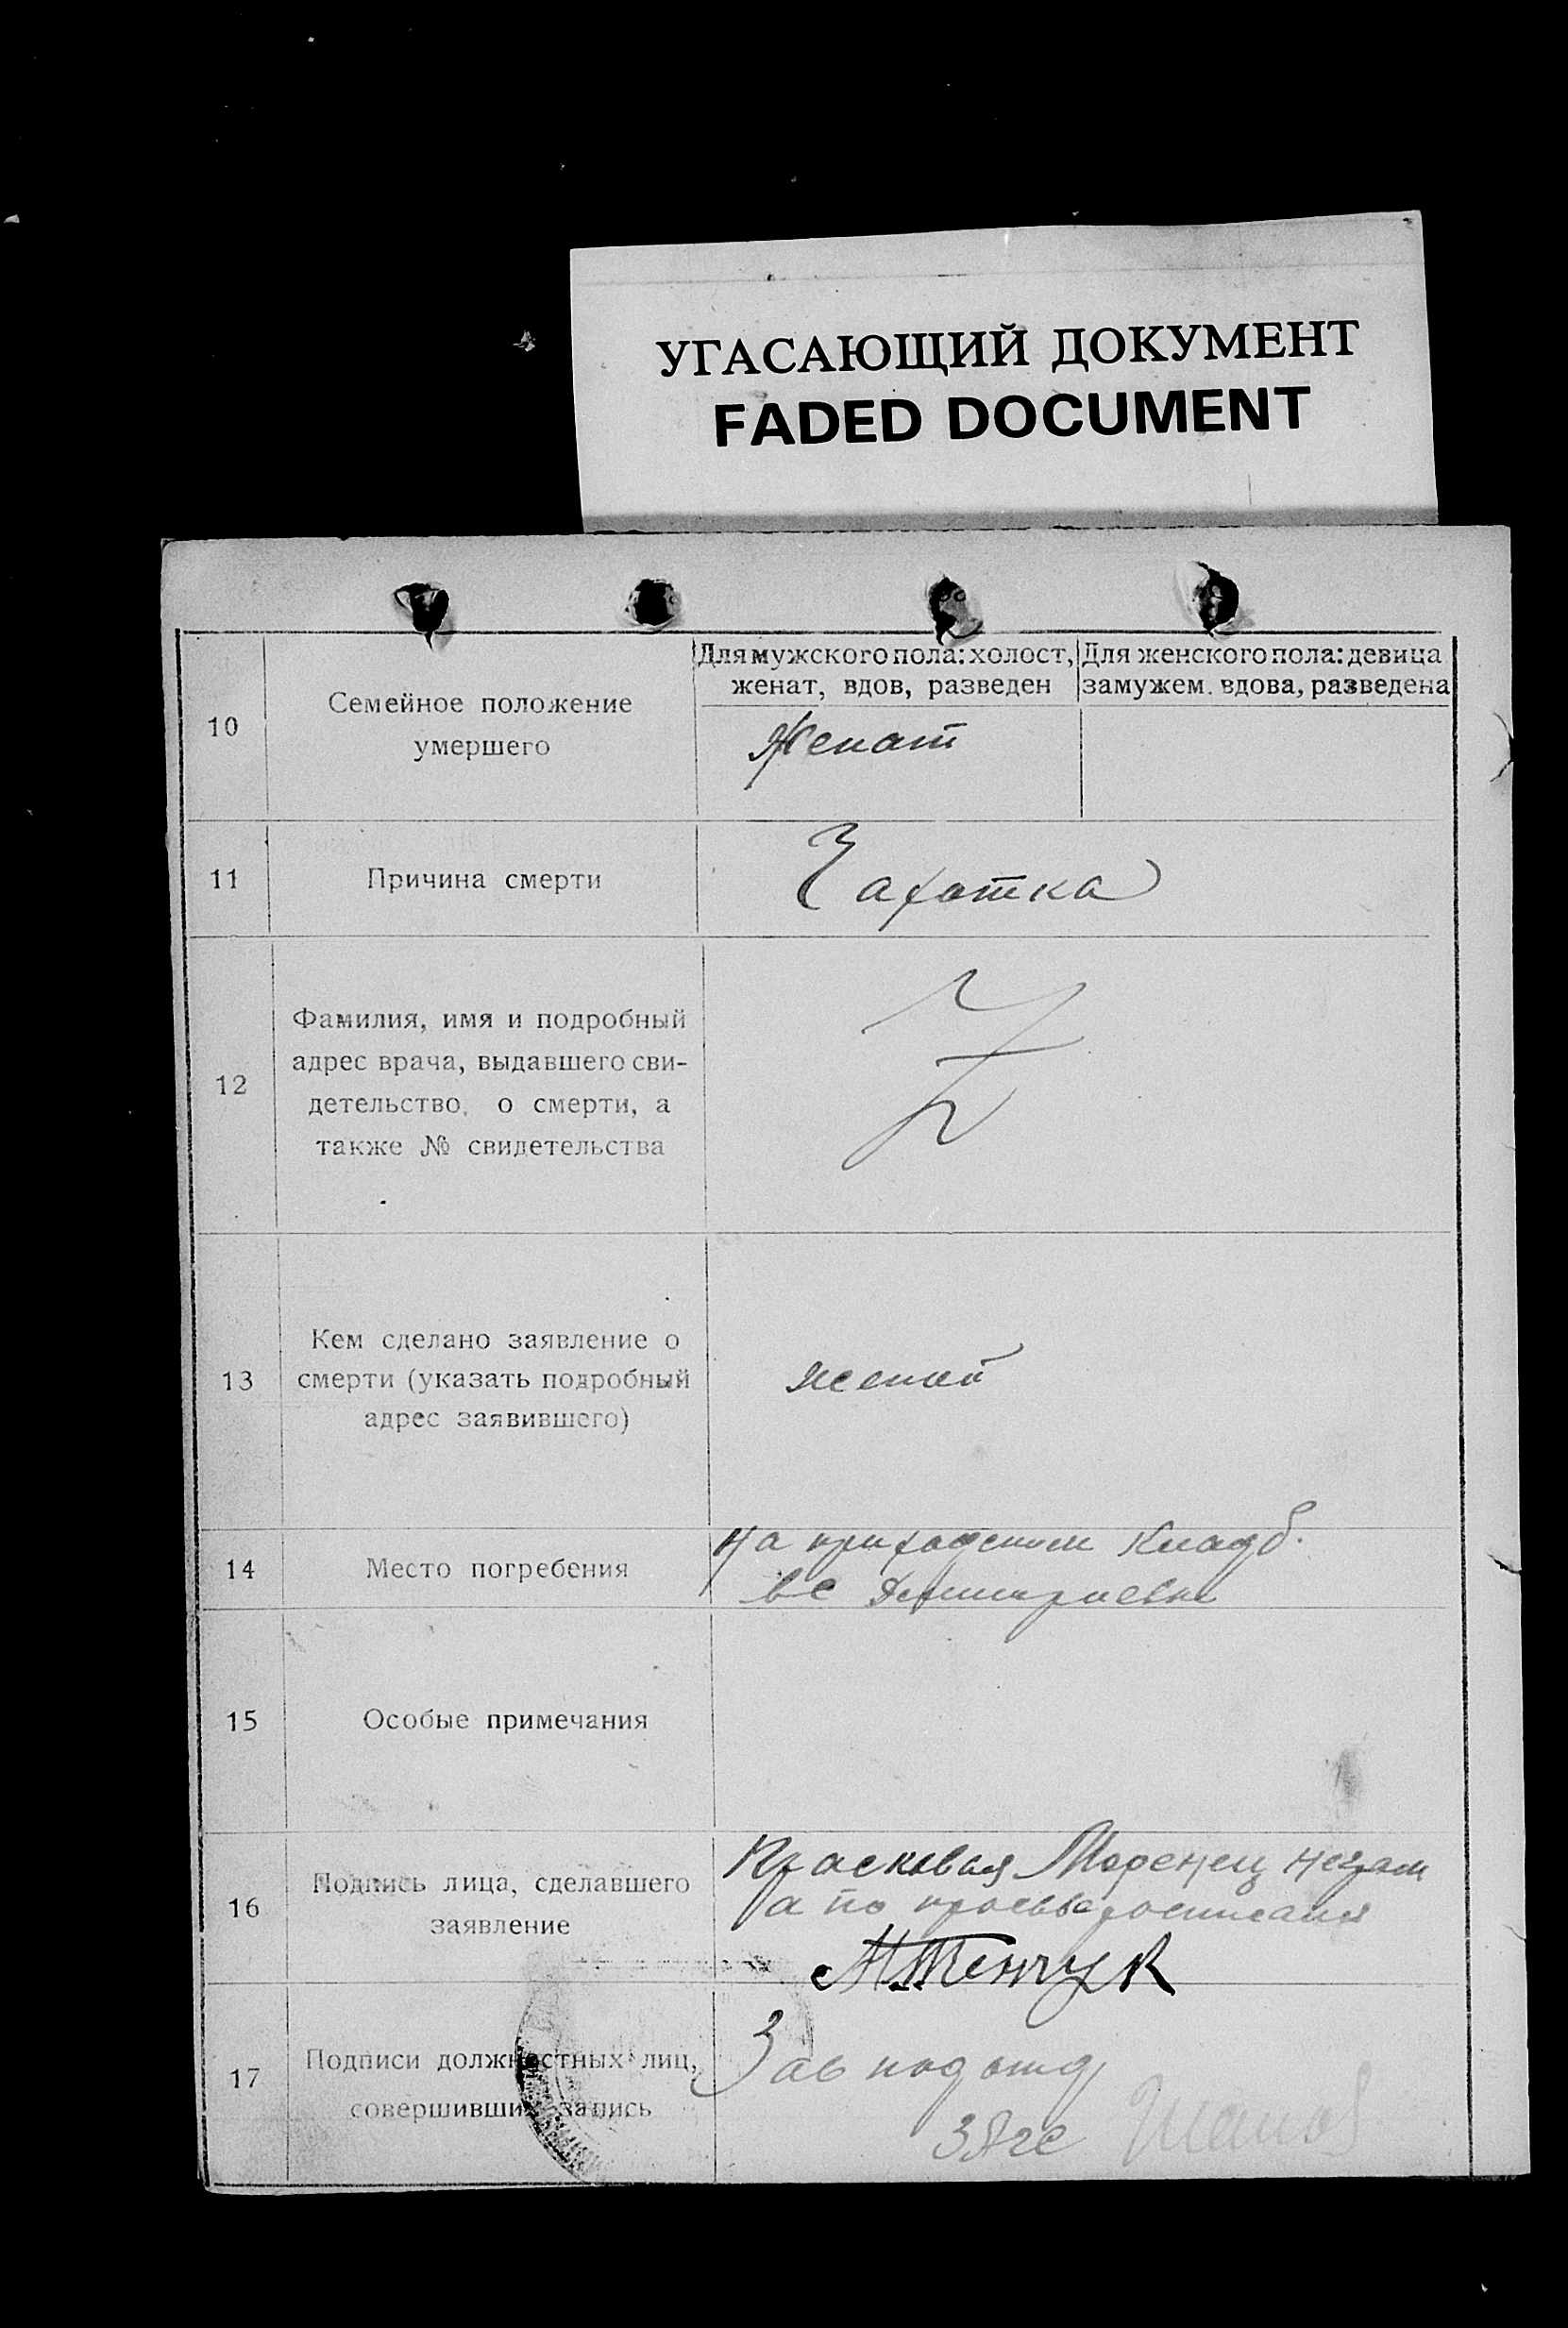 УГАСАЮЩИЙ ДОКУМЕНТ
FADED DOCUMENT
10
Семейное положение
умершего
Для мужского пола: холост,
женат, вдов, разведен
Для женского пола: девица
замужем. вдова, разведена
Женат
11
Причина смерти
Чахотка
12
Фамилия, имя и подробный
адрес врача, выдавшего сви-
детельство, о смерти, а
также № свидетельства
13
Кем сделано заявление о
смерти (указать подробный
адрес заявившего)
женой
14
Место погребения
На приходском кладб.
в с Дмитриевке
15
Особые примечания
16
Подпись лица, сделавшего
заявление
Прасковья негам
а по просьбе росписался
17
Подписи должностных лиц,
совершивших запись
Зав подотд
ЗАГС